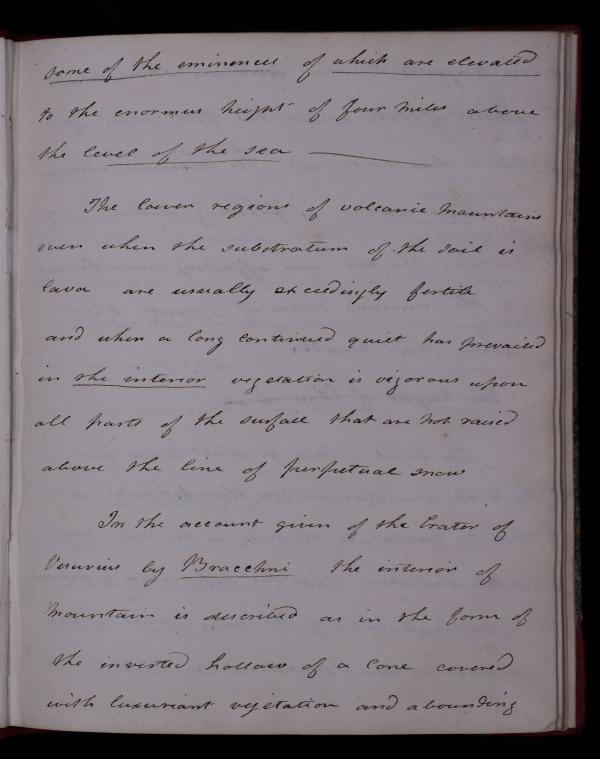 some of the eminences of which are elevated
to the enormus height of four miles above
the level of the sea
The lower regions of volcanic mountains
even when the substratum of the soil is
lava are usually exceedingly fertile
and when a long continued quiet has prevailed
in the interior vegetation is vigorous upon
all parts of the surface that are not raised
above the line of perpetual snow
In the account given of the Crater of
Vesuvius by Bracchini the interior of
Mountain is described as in the form of
the inverted hollow of a Cone covered
with luxuriant vegetation and abounding